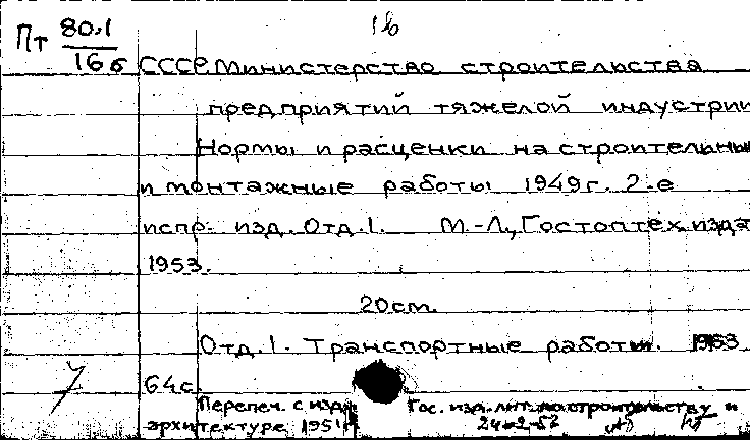 16
Пт 80.1
16б
СССР Министерство строительства
предприятий тяжелой индустрии
Нормы и расценки на строительные
и монтажные работы 1949г. 2-е
испр. изд. Отд.1. М.-Л., Гостоптехиздат
1953.
20cm.
Отд.1. Транспортные работы. 1953
64с.
7
Перепеч. с изд. Гос. изд. лит. по строительству и
архитектуре, 1951г.